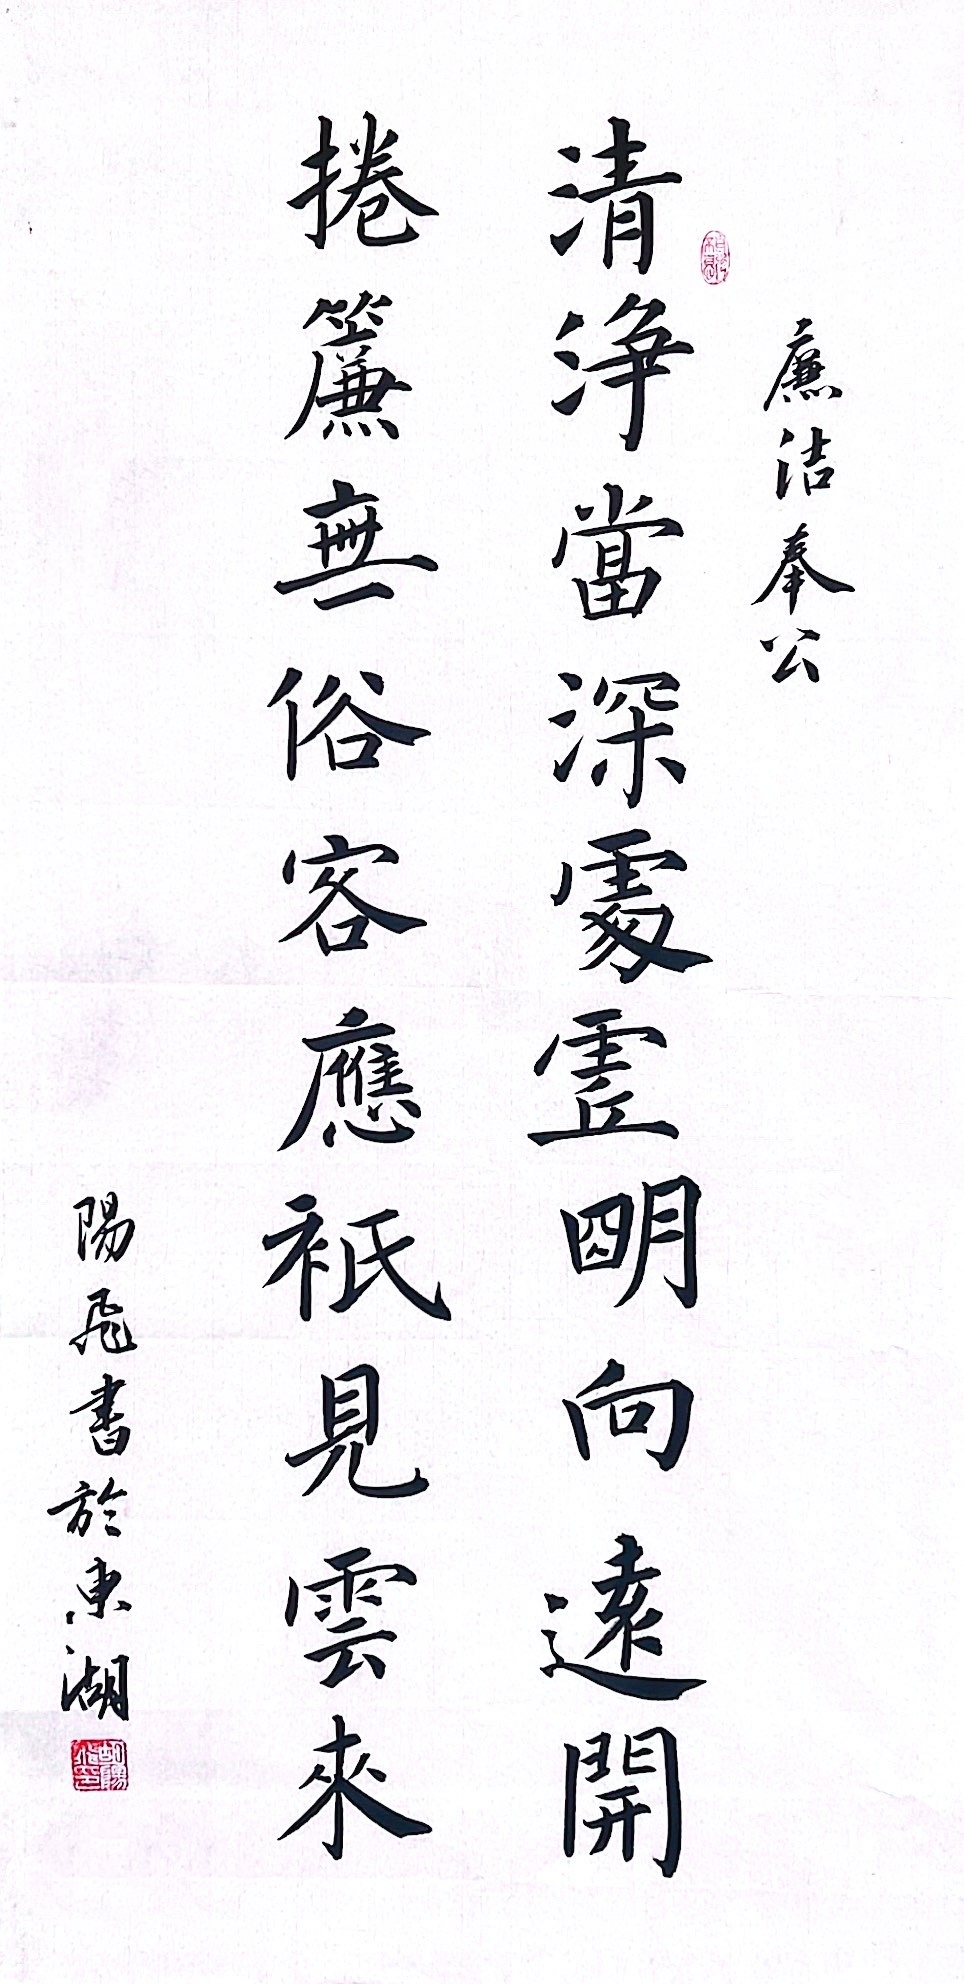 廉洁奉公
清淨當深處虛明向遠開
捲簾無俗客應祇見雲來
陽飛書於東湖